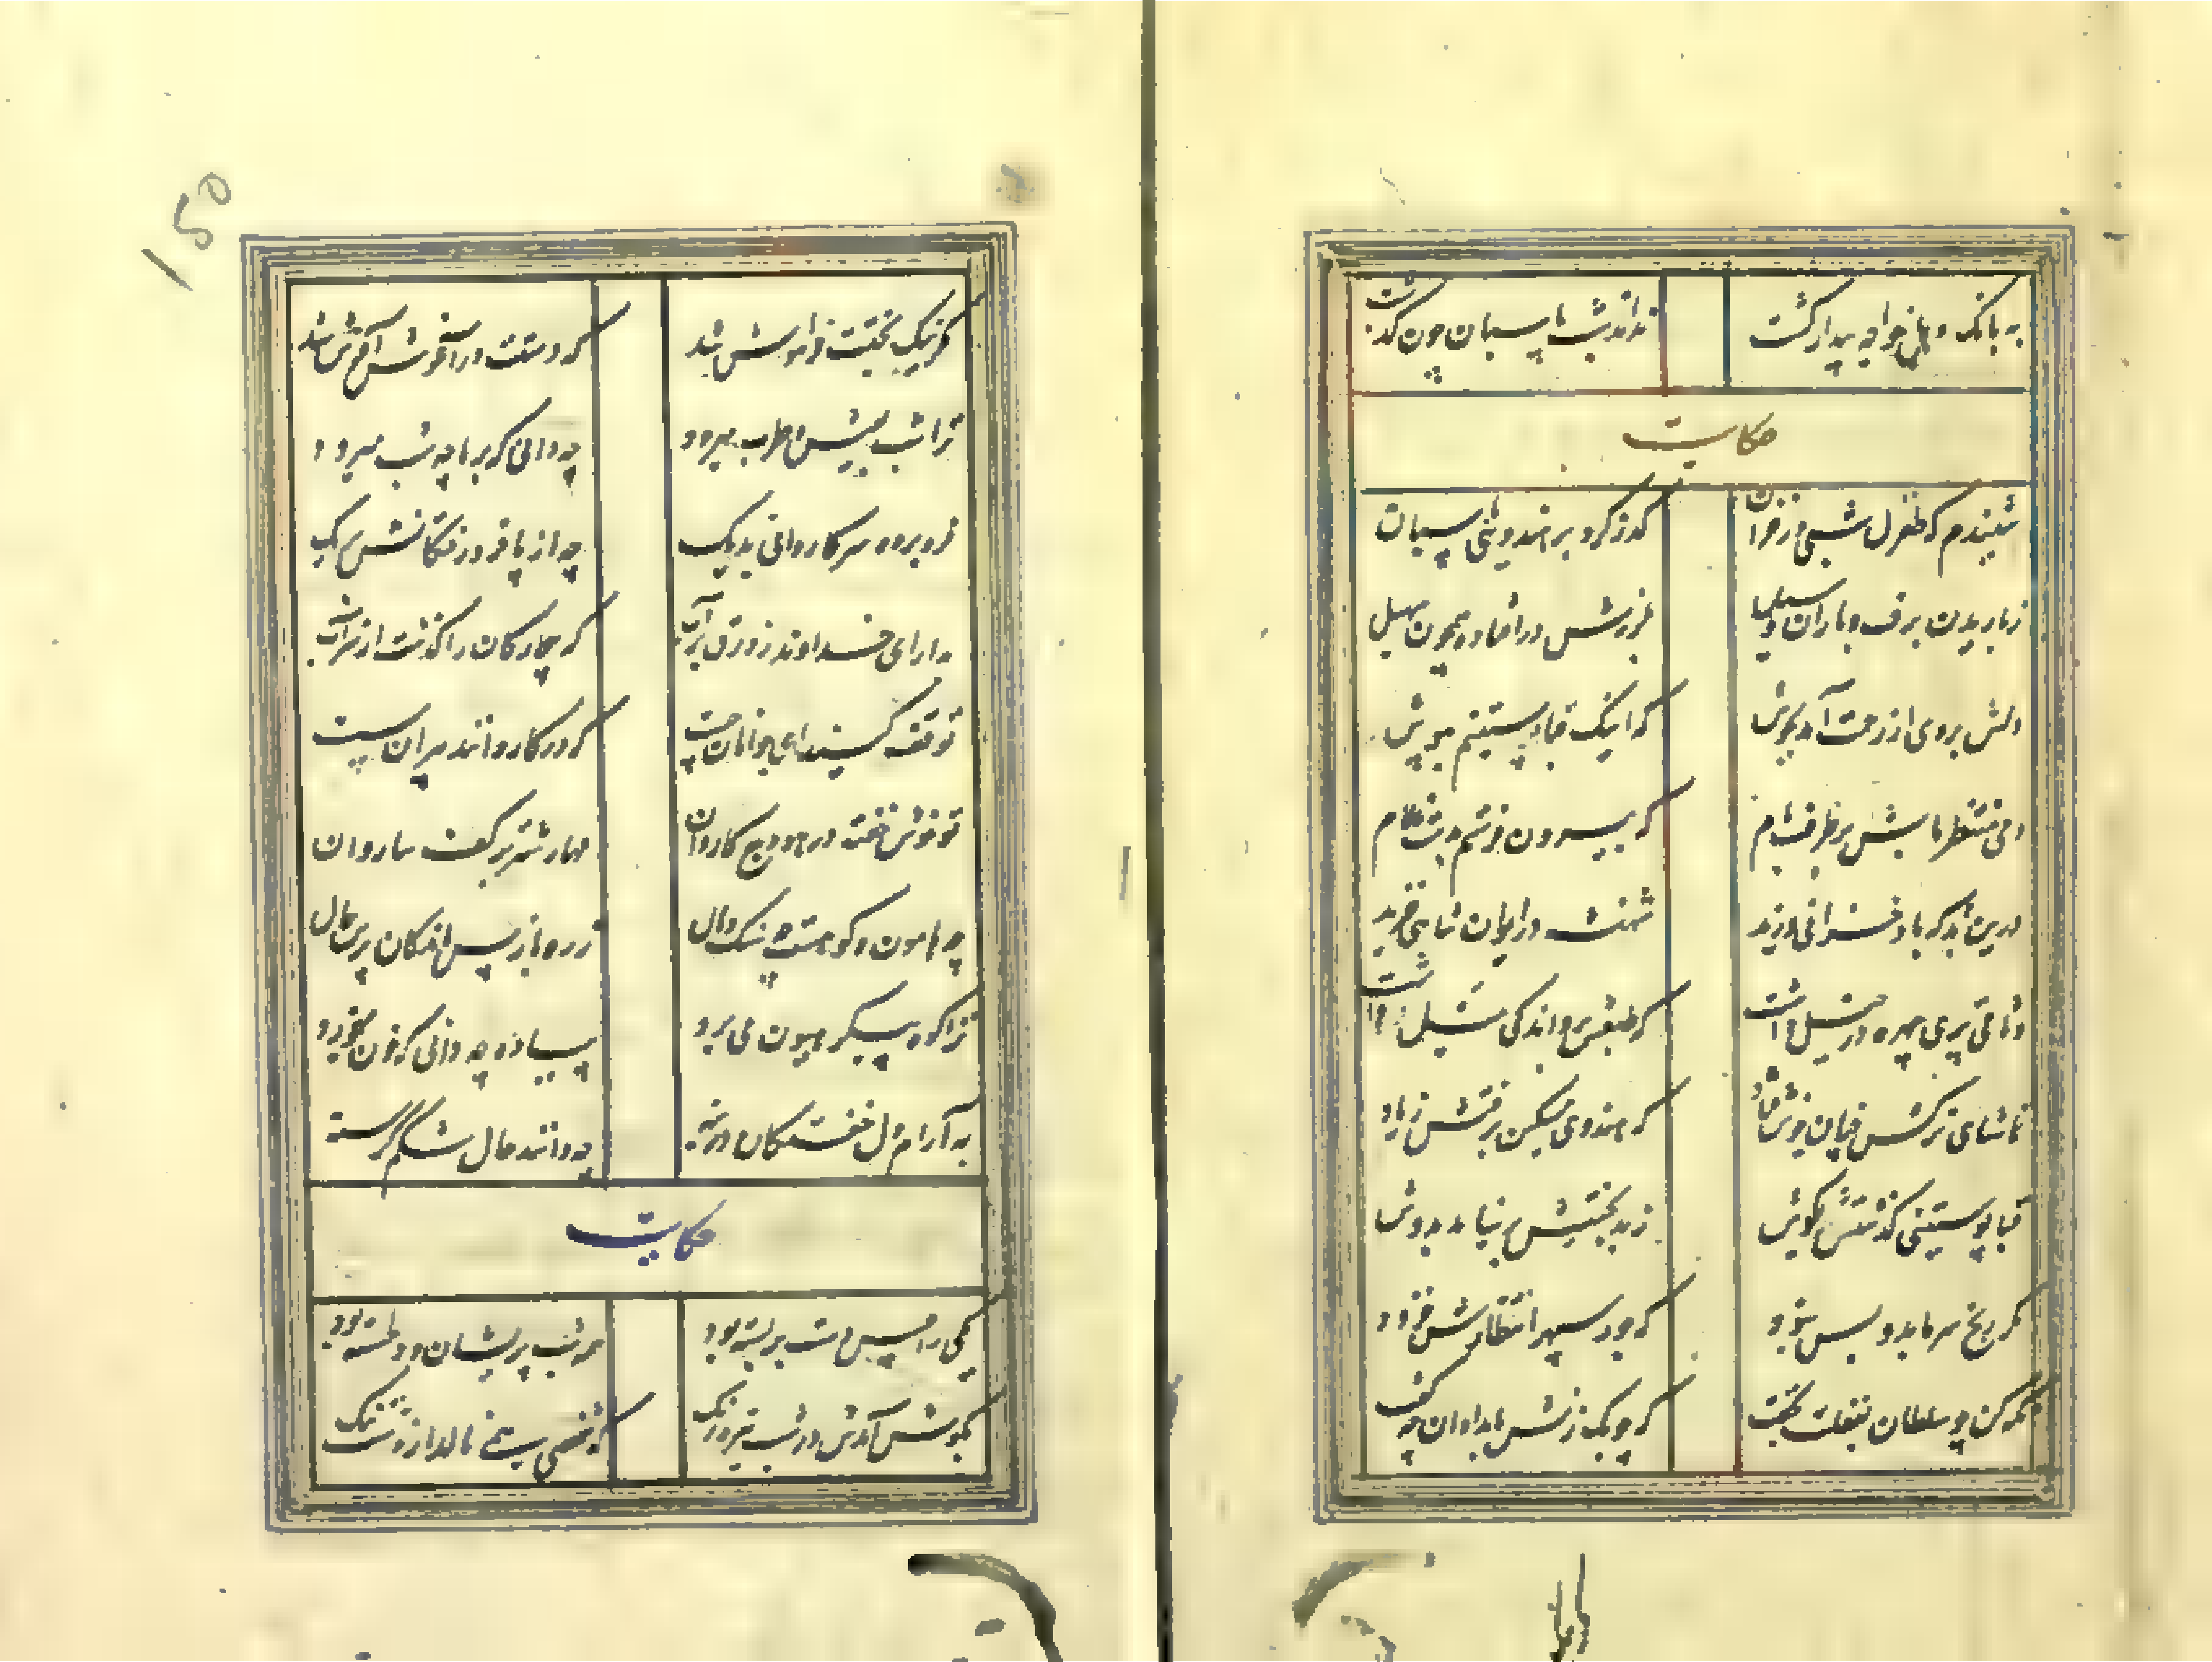 به بانگ دهل خواجه بیدار گشت نداند شب پاسبان چون گذشت
حکایت
شنیدم که طغرل شبی در خزان گذر کرد بر هندوئی پاسبان
ز باریدن برف و باران و سیل بلرزش در افتاده همچون سهیل
دلش بروی از رحمت آمد بجوش که اینک قبا پوستینم بپوش
دمی منتظر باش بر طرف بام که بیرون فرستم بدست غلام
درین بد که باد خزانی وزید شهنشه در ایوان شاهی خزید
وشاقی پری چهره در خیل داشت که طبعش برو اندکی میل داشت
تماشای ترکش چنان خوش فتاد که هندوی مسکین برفتش ز یاد
قبا پوستینی گذشتش بگوش ز بدبختیش بر نیامد بدوش
مگر رنج سرما بدو بس نبود که جور سپهر انتظارش فزود
نگه کن چو سلطان بغفلت بخفت که چوبک زنش بامدادان چه گفت
۱۵۰
مگر نیک بختت فراموش شد که دستت در آغوش آغوش شد
ترا شب بعیش و طرب میرود چه دانی که بر ما چه شب میرود
فرو برده سر کاروانی بدیگ چه از پا فرو رفتگانش بریگ
بدار ای خداوند زورق بر آب که بیچارگان را گذشت از سر آب
توقف کنید ای جوانان چست که در کاروانند پیران سست
تو خوش خفته در هودج کاروان مهار شتر بر کف ساروان
چه هامون و کوهت چه سنگ و رمال ز ره باز پس ماندگان پرس حال
ترا کوه پیکر هیون می برد پیاده چه دانی که خون میخورد
به آرام دل خفتگان در بنه چه دانند حال شکم گرسنه
حکایت
یکی را عسس دست بر بسته بود همه شب پریشان و دلخسته بود
بگوش آمدش در شب تیره رنگ که شخصی همی نالد از دست تنگ